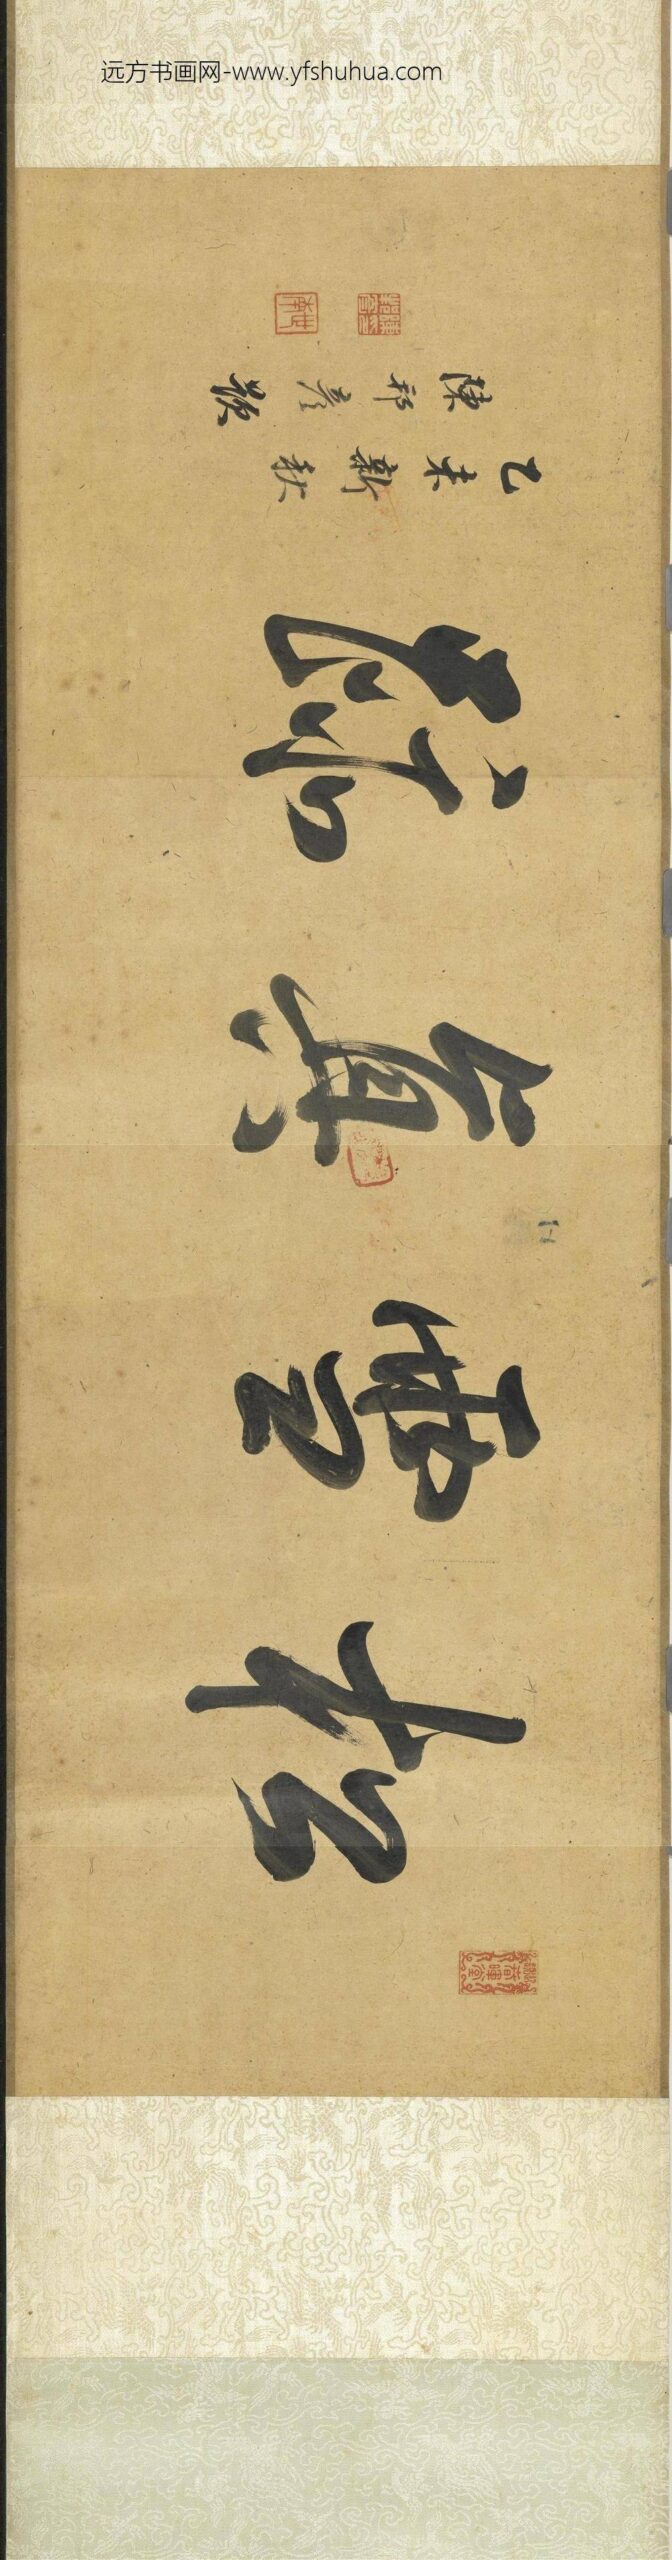 远方书画网-www.yfshuhua.com
松雪真跡
乙未新秋
陳邦彥